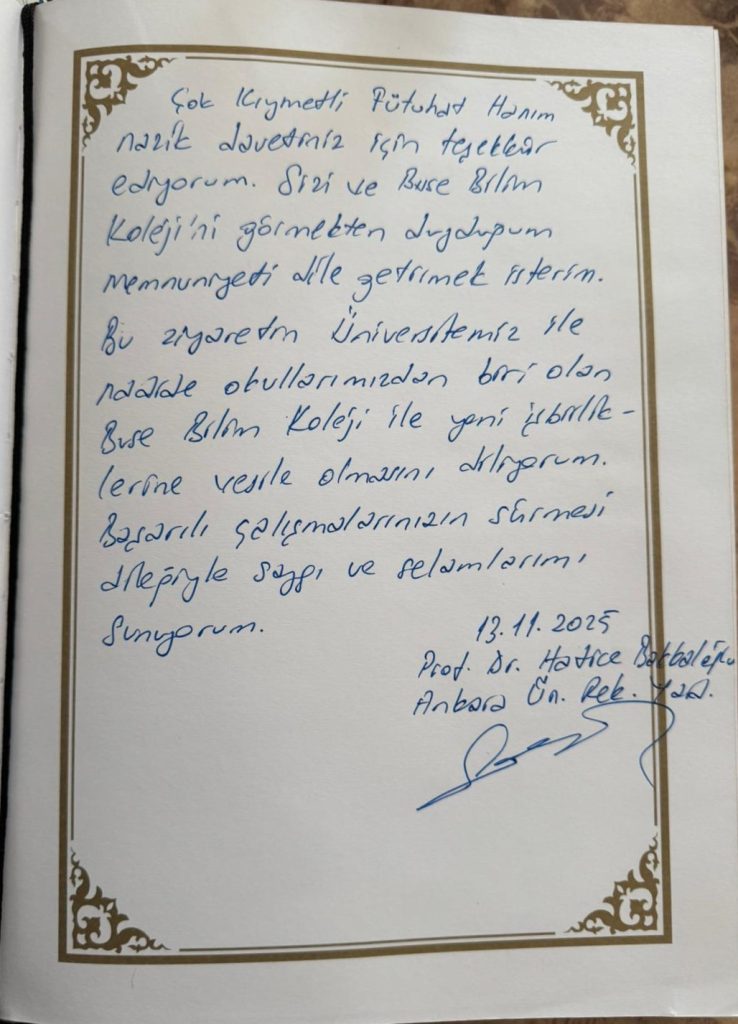 Çok Kıymetli Fütuhat Hanım
nazik davetiniz için teşekkür
ediyorum. Sizi ve Buse Bilim
Koleji'ni görmekten duyduğum
memnuniyeti dile getirmek isterim.
Bu ziyaretin Üniversitemiz ile
nadide okullarımızdan biri olan
Buse Bilim Koleji ile yeni işbirlik-
lerine vesile olmasını diliyorum.
Başarılı çalışmalarınızın sürmesi
dileğiyle saygı ve selamlarımı
sunuyorum.
13.11.2025
Prof. Dr. Hatice
Ankara Ün. Rek. Yard.